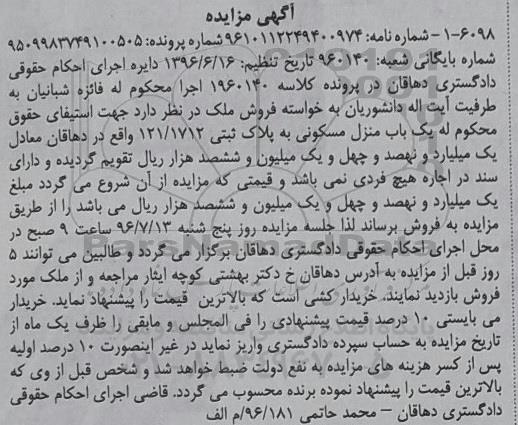 آگهی مزایده
۱-۶۰۹۸ – شماره نامه: ۹۶۱۰۱۱۲۲۴۹۴۰۰۹۷۴ شماره پرونده: ۹۵۰۹۹۸۳۷۴۹۱۰۰۵۰۵
شماره بایگانی شعبه: ۹۶۰۱۴۰ تاریخ تنظیم: ۱۳۹۶/۶/۱۶ دایره اجرای احکام حقوقی
دادگستری دهاقان در پرونده کلاسه ۱۹۶۰۱۴۰ اجرا محکوم له فائزه شبانیان به
طرفیت آیت اله دانشوریان به خواسته فروش ملک در نظر دارد جهت استیفای حقوق
محکوم له یک باب منزل مسکونی به پلاک ثبتی ۱۲۱/۱۷۱۲ واقع در دهاقان معادل
یک میلیارد و نهصد و چهل و یک میلیون و ششصد هزار ریال تقویم گردیده و دارای
سند در اجاره هیچ فردی نمی باشد و قیمتی که مزایده از آن شروع می گردد مبلغ
یک میلیارد و نهصد و چهل و یک میلیون و ششصد هزار ریال می باشد را از طریق
مزایده به فروش برساند لذا جلسه مزایده روز پنج شنبه ۹۶/۷/۱۳ ساعت ۹ صبح در
محل اجرای احکام حقوقی دادگستری دهاقان برگزار می گردد و طالبین می توانند ۵
روز قبل از مزایده به آدرس دهاقان خ دکتر بهشتی کوچه ایثار مراجعه و از ملک مورد
فروش بازدید نمایند. خریدار کسی است که بالاترین قیمت را پیشنهاد نماید. خریدار
می بایستی ۱۰ درصد قیمت پیشنهادی را فی المجلس و مابقی را ظرف یک ماه از
تاریخ مزایده به حساب سپرده دادگستری واریز نماید در غیر اینصورت ۱۰ درصد اولیه
پس از کسر هزینه های مزایده به نفع دولت ضبط خواهد شد و شخص قبل از وی که
بالاترین قیمت را پیشنهاد نموده برنده محسوب می گردد. قاضی اجرای احکام حقوقی
دادگستری دهاقان – محمد حاتمی ۹۶/۱۸۱/م الف
ParsNamadData